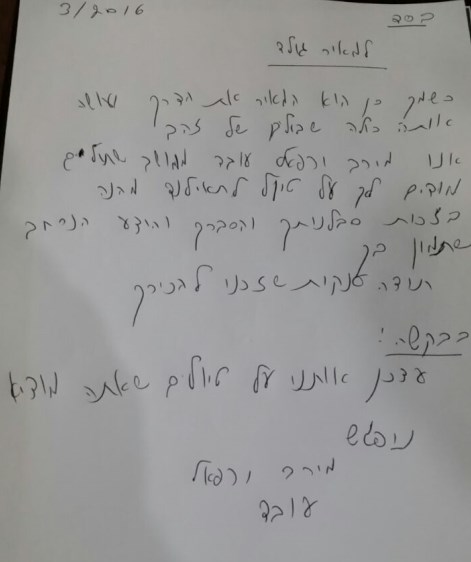 3/2016
בסד
למאיר גולד
כשמך כן הוא המאיר את הדרך ועושה
אותה כולה שבולים של זהב
אנו מירב ורפאל עובד ממושב שתולים
מודים לך על טיול לתאילנד מהנה
בזכות סבלנותך והסברך והידע הנרחב
שטמון בך
תודה ענקית שזכנו להכירך
בבקשה!
עדכן אותנו על טיולים שאתה מוציא
ניפגש
מירב ורפאל
עובד